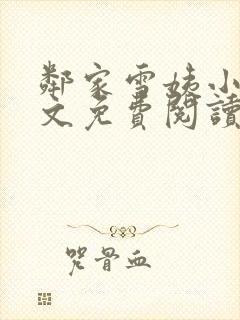 鄰家雪姨小
文免費閱讀
咒骨血